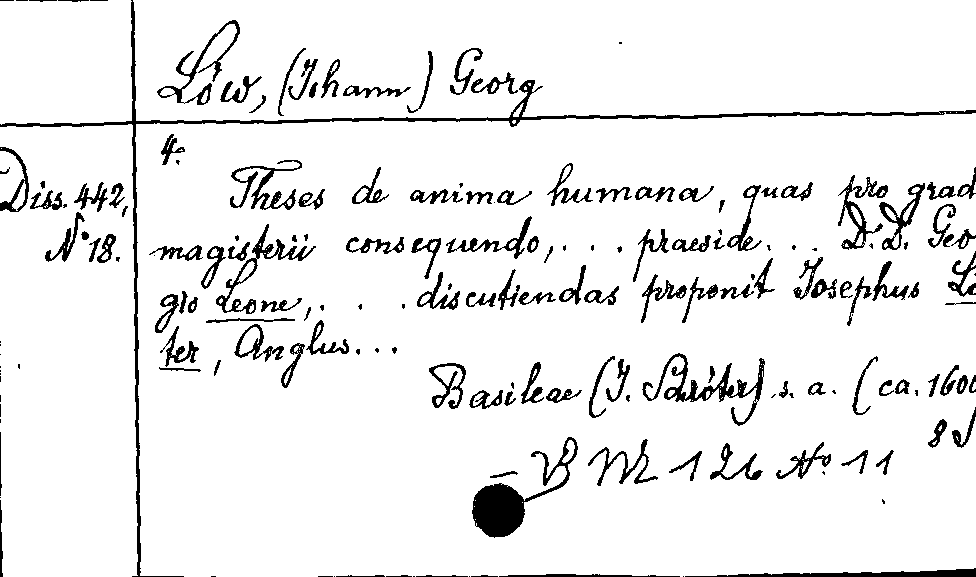 Löw, (Johann) Georg
4.
Diss. 442,
N° 18.
Theses de anima humana, quas pro grad
magisterii consequendo, . . . praeside . . . D. D. Geo
gio Leone, . . . discutiendas proponit Josephus
ter, Anglus . . .
Basileae (J. Schröter) s. a. (ca. 1600
8
— VB 126 N° 11